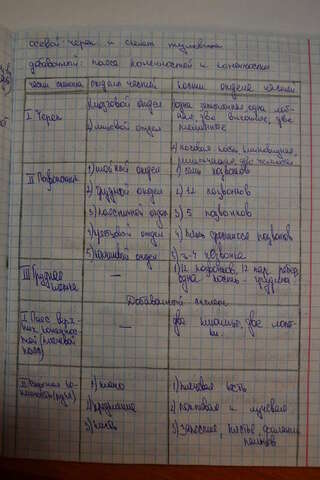 осевой череп и скелет туловища
добавочный пояса конечностей и конечности
части скелета отделы частей кости отдела частей
I Череп
1) мозговой отдел
одна затылочная одна лоб-
ная, две височные, две
теменные
2) лицевой отдел
2) носовая кость
II Позвоночник
1) шейный отдел 1) семь позвонков
2) грудной отдел 2) 12 позвонков
3) поясничный отдел 3) 5 позвонков
4) крестцовый отдел 4) сросшихся позвонков
5) копчиковый отдел 5) 3-4 позвонка
III Грудная клетка
—
1) 12 позвонков, 12 пар ребер
одна кость - грудина
Добавочный скелет
I Пояс верх-
них конечнос-
тей (плечевой
пояс)
—
две ключицы, две лопат-
ки.
II Верхняя ко-
нечность (рука)
1) плечо 1) плечевая кость
2) предплечье 2) локтевая и лучевая
3) кисть 3) запястье, пястье, фаланги
пальцев